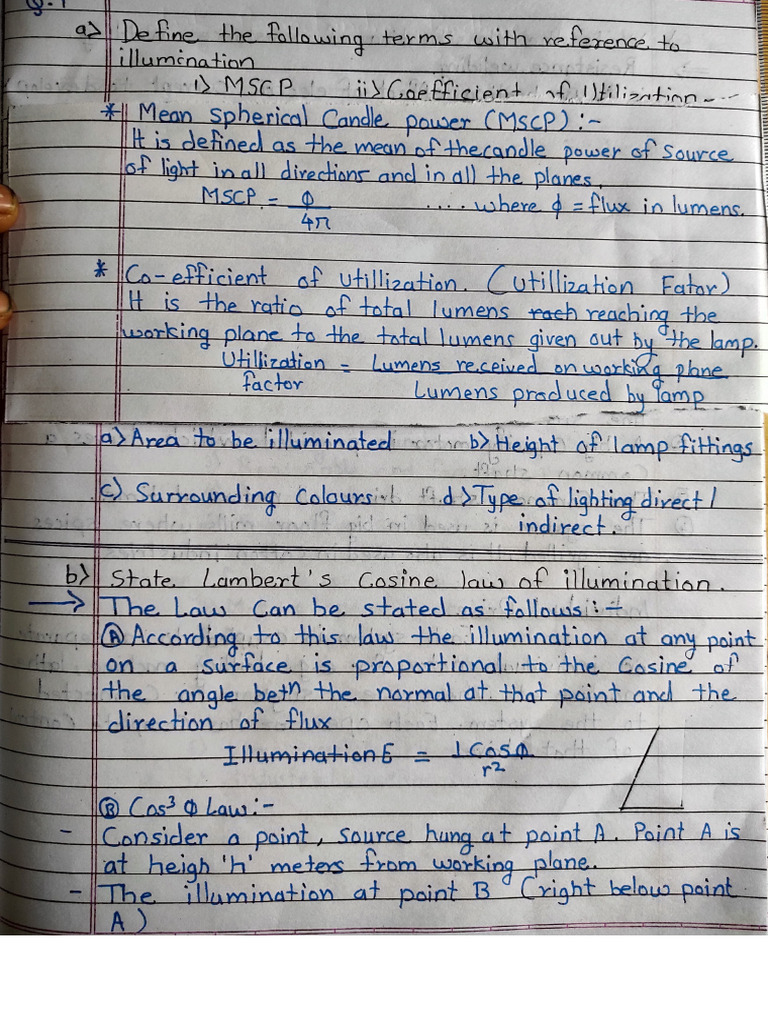 Q.1
a> Define the following terms with reference to
illumination
i> MSCP ii> Coefficient of Utilization
* Mean Spherical Candle power (MSCP) :-
It is defined as the mean of the candle power of source
of light in all directions and in all the planes.
MSCP = ϕ / 4π .... where ϕ = flux in lumens.
* Co-efficient of utillization. (Utillization Fator)
It is the ratio of total lumens reach reaching the
working plane to the total lumens given out by the lamp.
Utillization factor = Lumens received on working plane / Lumens produced by lamp
a> Area to be illuminated b> Height of lamp fittings
c) Surrounding Colours d> Type of lighting direct /
indirect.
b> State Lambert's Cosine law of illumination.
→ The Law Can be stated as follows :-
Ⓐ According to this law the illumination at any point
on a surface is proportional to the Cosine of
the angle betn the normal at that point and the
direction of flux
Illumination E = I Cos ϕ / r²
Ⓑ Cos³ ϕ Law :-
- Consider a point, source hung at point A. Point A is
at heigh 'h' meters from working plane.
- The illumination at point B (right below point
A)